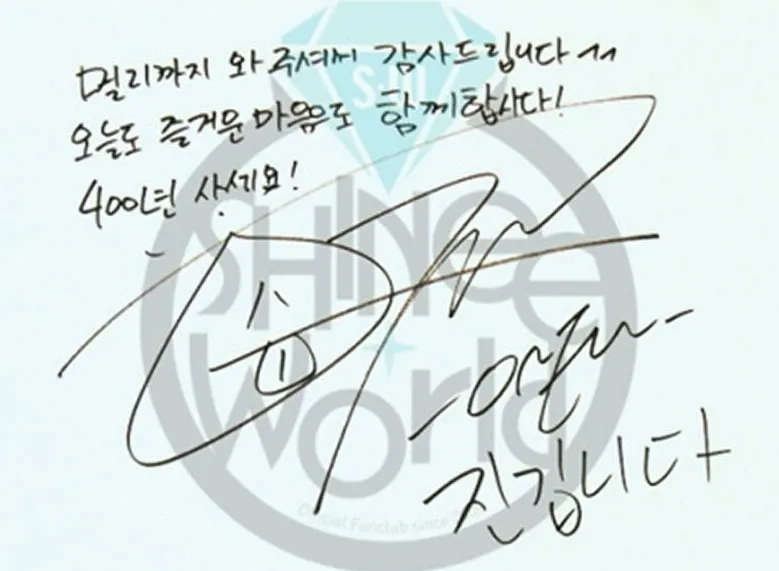 멀리까지 와 주셔서 감사드립니다^^
오늘도 즐거운 마음으로 함께합시다!
400년 사세요!
SJM
SHINee
World
Official Fanclub since
-온유-
진깁니다